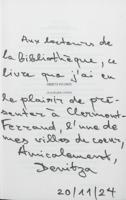 Aux lecteurs de
la bibliothèque, ce
livre que j'ai eu
le plaisir de pré-
senter à Clermont-
Ferrand, l'une de
mes villes de cœur,
Amicalement,
20/11/24